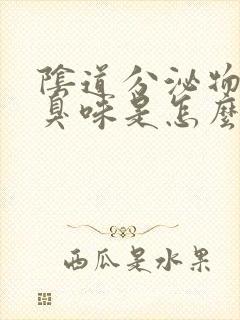 陰道分泌物
臭味是怎麼
西瓜是水果